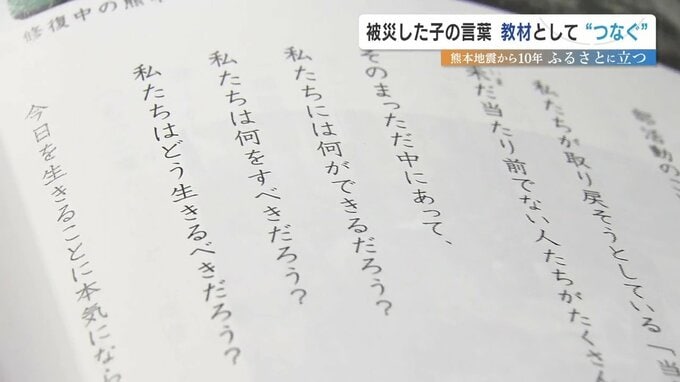 被災した子の言葉 教材として “つなぐ”
熊本地震から10年 ふるさとに立つ
修復中の熊本
部活動のこ
私たちが取り戻そうとしている「当
だ当たり前でない人たちがたくさん
そのまっただ中にあって、
私たちには何ができるだろう?
私たちは何をすべきだろう?
私たちはどう生きるべきだろう?
今日を生きることに本気になら